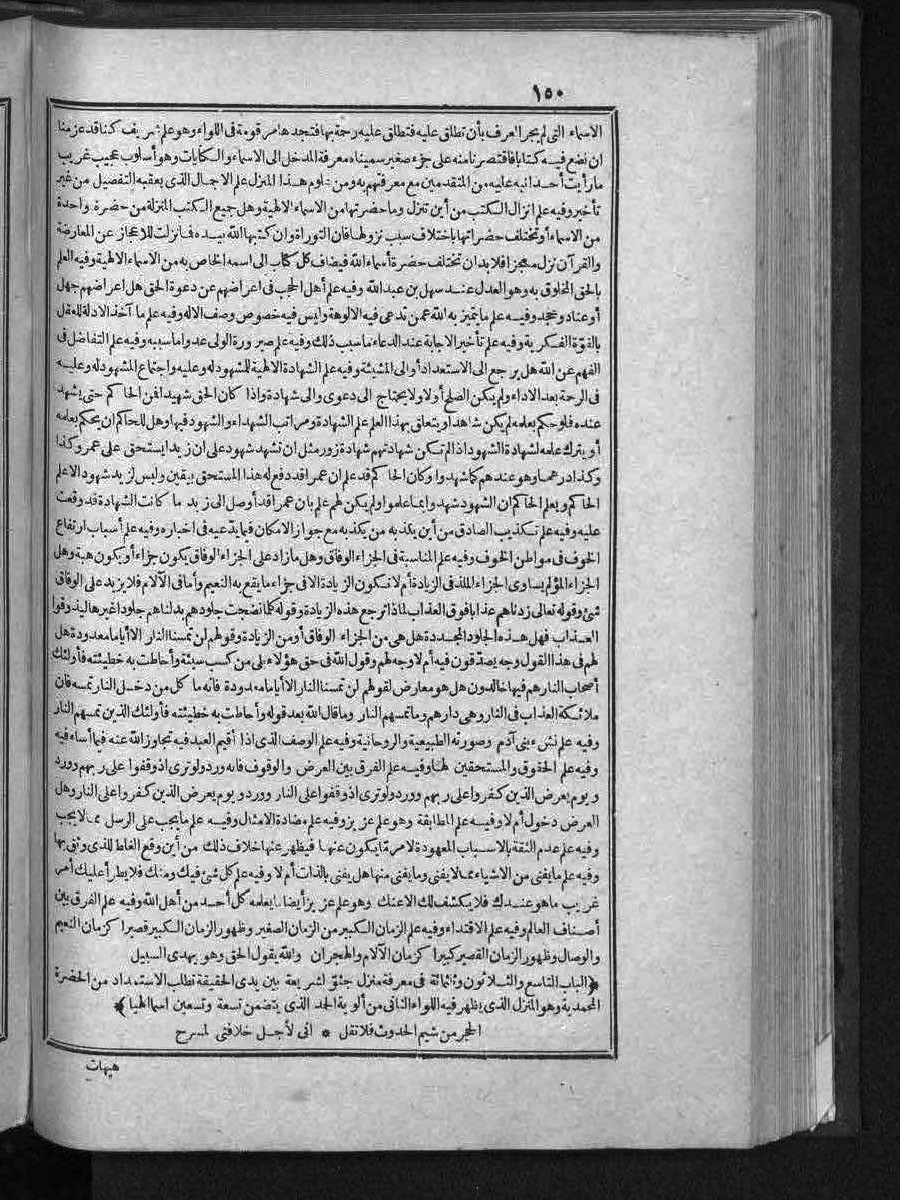 ١٥٠
الاسماء التى لم يجر العرف بأن تطلق عليه فتطلق عليه رحة بها فتجدها مرقومة فى اللواء وهو علم شريف كنا قد عزمنا
ان نضع فيه كتابا فاقتصرنا منه على جزء صغير سميناه معرفة المدخل الى الاسماء والكنايات وهو أسلوب عجيب غريب
ما رأيت أحدا نبه عليه من المتقدمين مع معرفتهم به ومن علوم هذا المنزل علم الاجمال الذى يعقبه التفصيل من غير
تأخير وفيه علم انزال الكتب من أين تنزل وما حضرتها من الاسماء الالهية وهل جميع الكتب المنزلة من حضرة واحدة
من الاسماء أو تختلف حضراتها باختلاف سبب نزولها فان التوراة وان كتبها الله بيده فما نزلت للاعجاز عن المعارضة
والقرآن نزل معجزا فلا بد ان تختلف حضرة أسماء الله فيضاف كل كتاب الى اسمه الخاص به من الاسماء الالهية وفيه العلم
بالحق المخلوق به وهو العدل عند سهل بن عبد الله وفيه علم أهل الحجب فى اعراضهم عن دعوة الحق هل اعراضهم جهل
أو عناد وجحد وفيه علم ما يتميز به الله عمن تدعى فيه الالوهة وليس فيه خصوص وصف الاله وفيه علم مآخذ الادلة للعقل
بالقوة الفكرية وفيه علم تأخير الاجابة عند الدعاء ما سبب ذلك وفيه علم صيرورة الولى عدوا ما سببه وفيه علم التفاضل فى
الفهم عن الله هل يرجع الى الاستعداد أو الى المشيئة وفيه علم الشهادة الالهية للمشهود له وعليه واجتماع المشهود له وعليه
فى الرحة بعد الاداء ولم يكن الصلح أولا ولا يحتاج الى دعوى والى شهادة واذا كان الحق شهيدا فمن الحاكم حتى يشهد
عنده فلو حكم بعلمه لم يكن شاهدا ويتعلق بهذا العلم علم الشهادة ومراتب الشهداء والشهود فيها وهل للحاكم ان يحكم بعلمه
أو يترك علمه لشهادة الشهود اذا لم تكن شهادتهم شهادة زور مثل ان تشهد شهود على ان زيدا يستحق على عمرو كذا
وكذا درهما وهو عندهم كما شهدوا وكان الحاكم قد علم ان عمرا قد دفع له هذا المستحق بيقين وليس لزيد شهود الا علم
الحاكم ويعلم الحاكم ان الشهود شهدوا بما علموا ولم يكن لهم علم بان عمرا قد أوصل الى زيد ما كانت الشهادة قد وقعت
عليه وفيه علم تكذيب الصادق من أين يكذبه من يكذبه مع جواز الامكان فيما يدعيه فى اخباره وفيه علم أسباب ارتفاع
الخوف فى مواطن الخوف وفيه علم المناسبة فى الجزاء الوفاق وهل ما زاد على الجزاء الوفاق يكون جزاء أو يكون هبة وهل
الجزاء المؤلم يساوى الجزاء الملذ فى الزيادة أم لا تكون الزيادة الا فى جزاء ما يقع به النعيم وأما فى الآلام فلا يزيد على الوفاق
شئ وقوله تعالى زدناهم عذابا فوق العذاب لماذا ترجع هذه الزيادة وقوله كلما نضجت جلودهم بدلناهم جلودا غيرها ليذوقوا
العذاب فهل هذه الجلود المجددة هل هى من الجزاء الوفاق أو من الزيادة وقولهم لن تمسنا النار الا أياما معدودة هل
لهم فى هذا القول وجه يصدقون فيه أم لا وجه لهم وقول الله فى حق هؤلاء بلى من كسب سيئة وأحاطت به خطيئته فأولئك
أصحاب النار هم فيها خالدون هل هو معارض لقولهم لن تمسنا النار الا أياما معدودة فانه ما كل من دخل النار تمسه فان
ملائكة العذاب فى النار وهى دارهم وما تمسهم النار وما قال الله بعد قوله وأحاطت به خطيئته فأولئك الذين تمسهم النار
وفيه علم نشء بنى آدم وصورته الطبيعية والروحانية وفيه علم الوصف الذى اذا أقيم العبد فيه تجاوز الله عنه فيما أساء فيه
وفيه علم الحقوق والمستحقين لها وفيه علم الفرق بين العرض والوقوف فانه ورد ولو ترى اذ وقفوا على ربهم وورد
ويوم يعرض الذين كفروا على ربهم وورد ولو ترى اذ وقفوا على النار وورد ويوم يعرض الذين كفروا على النار وهل
العرض دخول أم لا وفيه علم المطابقة وهو علم عزيز وفيه علم مضادة الامثال وفيه علم ما يجب على الرسل مما لا يجب
وفيه علم عدم الثقة بالاسباب المعهودة لامر ما يكون عنها فيظهر عنها خلاف ذلك من أين وقع الغلط للذى وثق بها
وفيه علم ما يفنى من الاشياء مما لا يفنى وما يفنى منها هل يفنى بالذات أم لا وفيه علم كل شئ فيك ومنك فلا يطرأ عليك أمر
غريب ما هو عندك فلا يكشف لك الا عنك وهو علم عزيز أيضا ما يعلمه كل أحد من أهل الله وفيه علم الفرق بين
أصناف العالم وفيه علم الاقتداء وفيه علم الزمان الكبير من الزمان الصغير وظهور الزمان الكبير قصيرا كزمان النعيم
والوصال وظهور الزمان القصير كبيرا كزمان الآلام والهجران والله يقول الحق وهو يهدى السبيل
﴿الباب التاسع والثلاثون وثلثمائة فى معرفة منزل جثو الشريعة بين يدى الحقيقة تطلب الاستمداد من الحضرة
المحمدية وهو المنزل الذى يظهر فيه اللواء الثانى من ألوية الحمد الذى يتضمن تسعة وتسعين اسما الهيا﴾
الحجر من شيم الحدوث فلا تقل * انى لأجل خلافتى لمسرح
هيهات